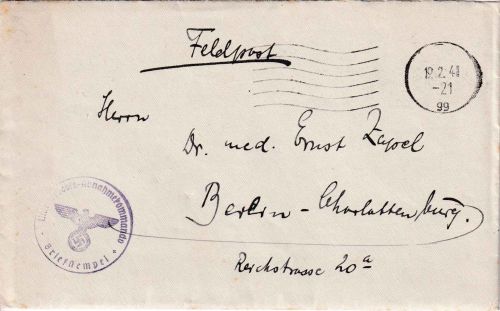 Feldpost
19.2.41
-21
99
Herrn
Dr. med. Ernst Zapel
Berlin - Charlottenburg.
Reichstrasse 20a
Briefstempel